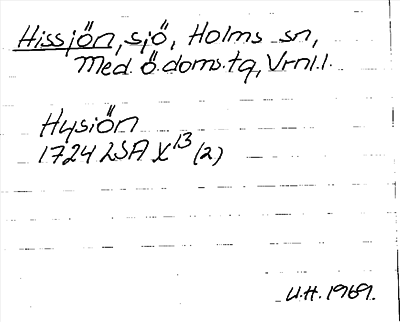 Hissjön, sjö, Holms sn,
Med. ö. doms. tg, Vrnl. l.
Hysiön
1724 LSA X 13 (2)
U.H. 1969.